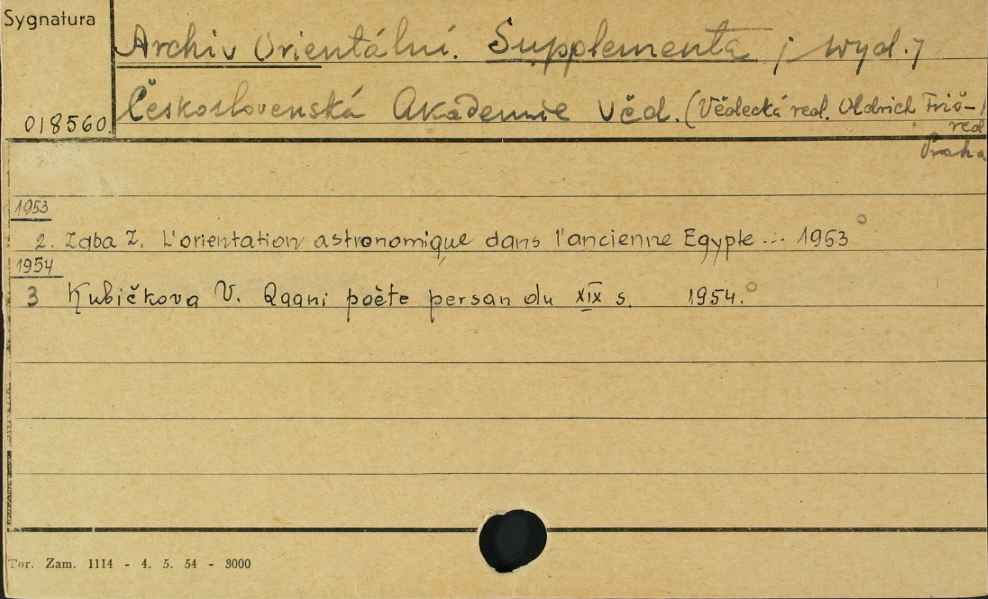 Sygnatura
Archiv Orientální. Supplementa ; wyd. ;
018560. Československá Akademie Věd. (Vědecká red. Oldrich Friš-
red
Praha
1953
2. Zaba Z. L'orientation astronomique dans l'ancienne Egypte ... 1953
1954
3 Kubičkova V. Qaani poète persan du XIX s. 1954.
Tor. Zam. 1114 - 4. 5. 54 - 3000